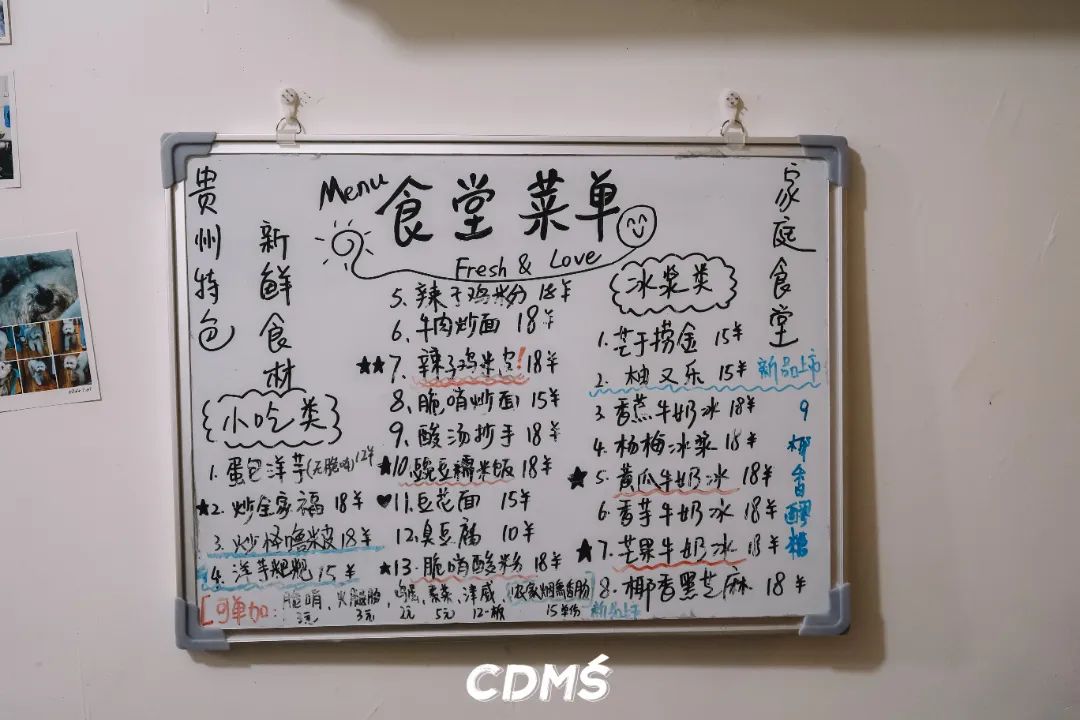 贵州特色
新鲜食材
Menu
食堂菜单
Fresh & Love
家庭食堂
小吃类
1. 蛋包洋芋(无脆哨)12¥
★2. 炒全家福 18¥
3. 炒怪噜米皮 18¥
4. 洋芋粑粑 15¥
5. 辣子鸡米分 18¥
6. 牛肉炒面 18¥
★★7. 辣子鸡米皮! 18¥
8、脆哨炒面 15¥
9、酸汤抄手 18¥
★10. 豌豆糯米饭 18¥
♥11. 豆花面 15¥
12. 臭豆腐 10¥
★13. 脆哨酸粉 18¥
[可单加: 脆哨、火腿肠、鸡蛋、素菜、洋咸、农家烟熏香肠
3元 2元 5元 15¥/份 新品上市
冰浆类
1. 芒于捞金 15¥
2. 柚又乐 15¥ 新品上市
3 香蕉牛奶冰 18¥
4. 杨梅冰浆 18¥
★5. 黄瓜牛奶冰 18¥
6. 香芋牛奶冰 18¥
★7. 芒果牛奶冰 18¥
8. 椰香黑芝麻 18¥
9 椰香醪糟
CDMŚ